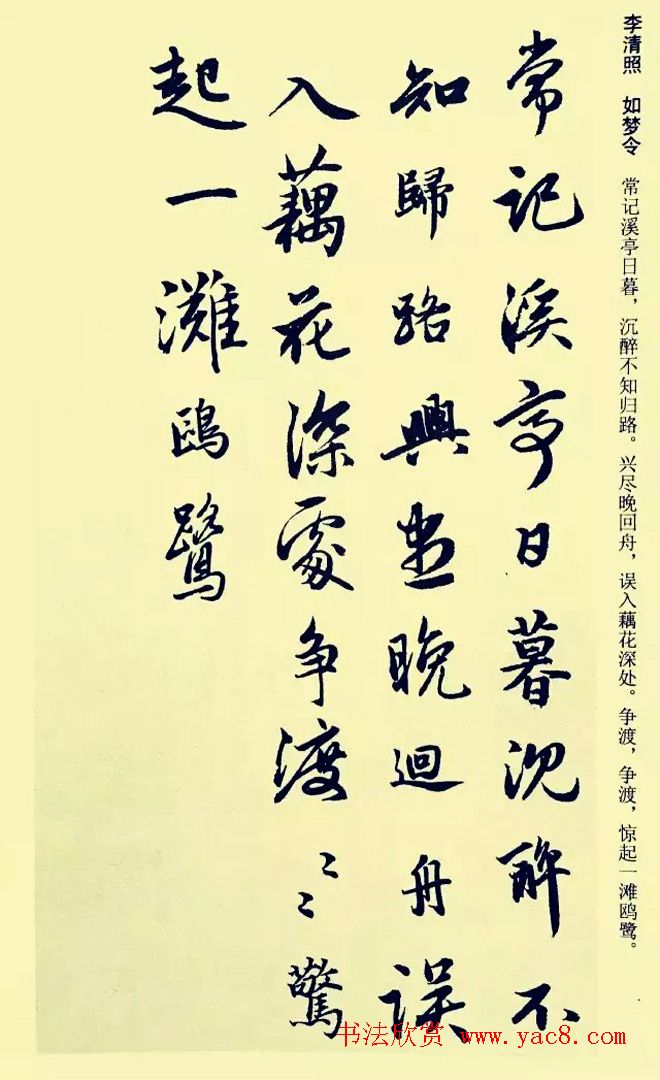 李清照 如梦令 常记溪亭日暮，沉醉不知归路。兴尽晚回舟，误入藕花深处。争渡，争渡，惊起一滩鸥鹭。
常記溪亭日暮沉醉不
知歸路興盡晚迴舟誤
入藕花深處争渡〻〻驚
起一灘鷗鷺
书法欣赏 www.yac8.com